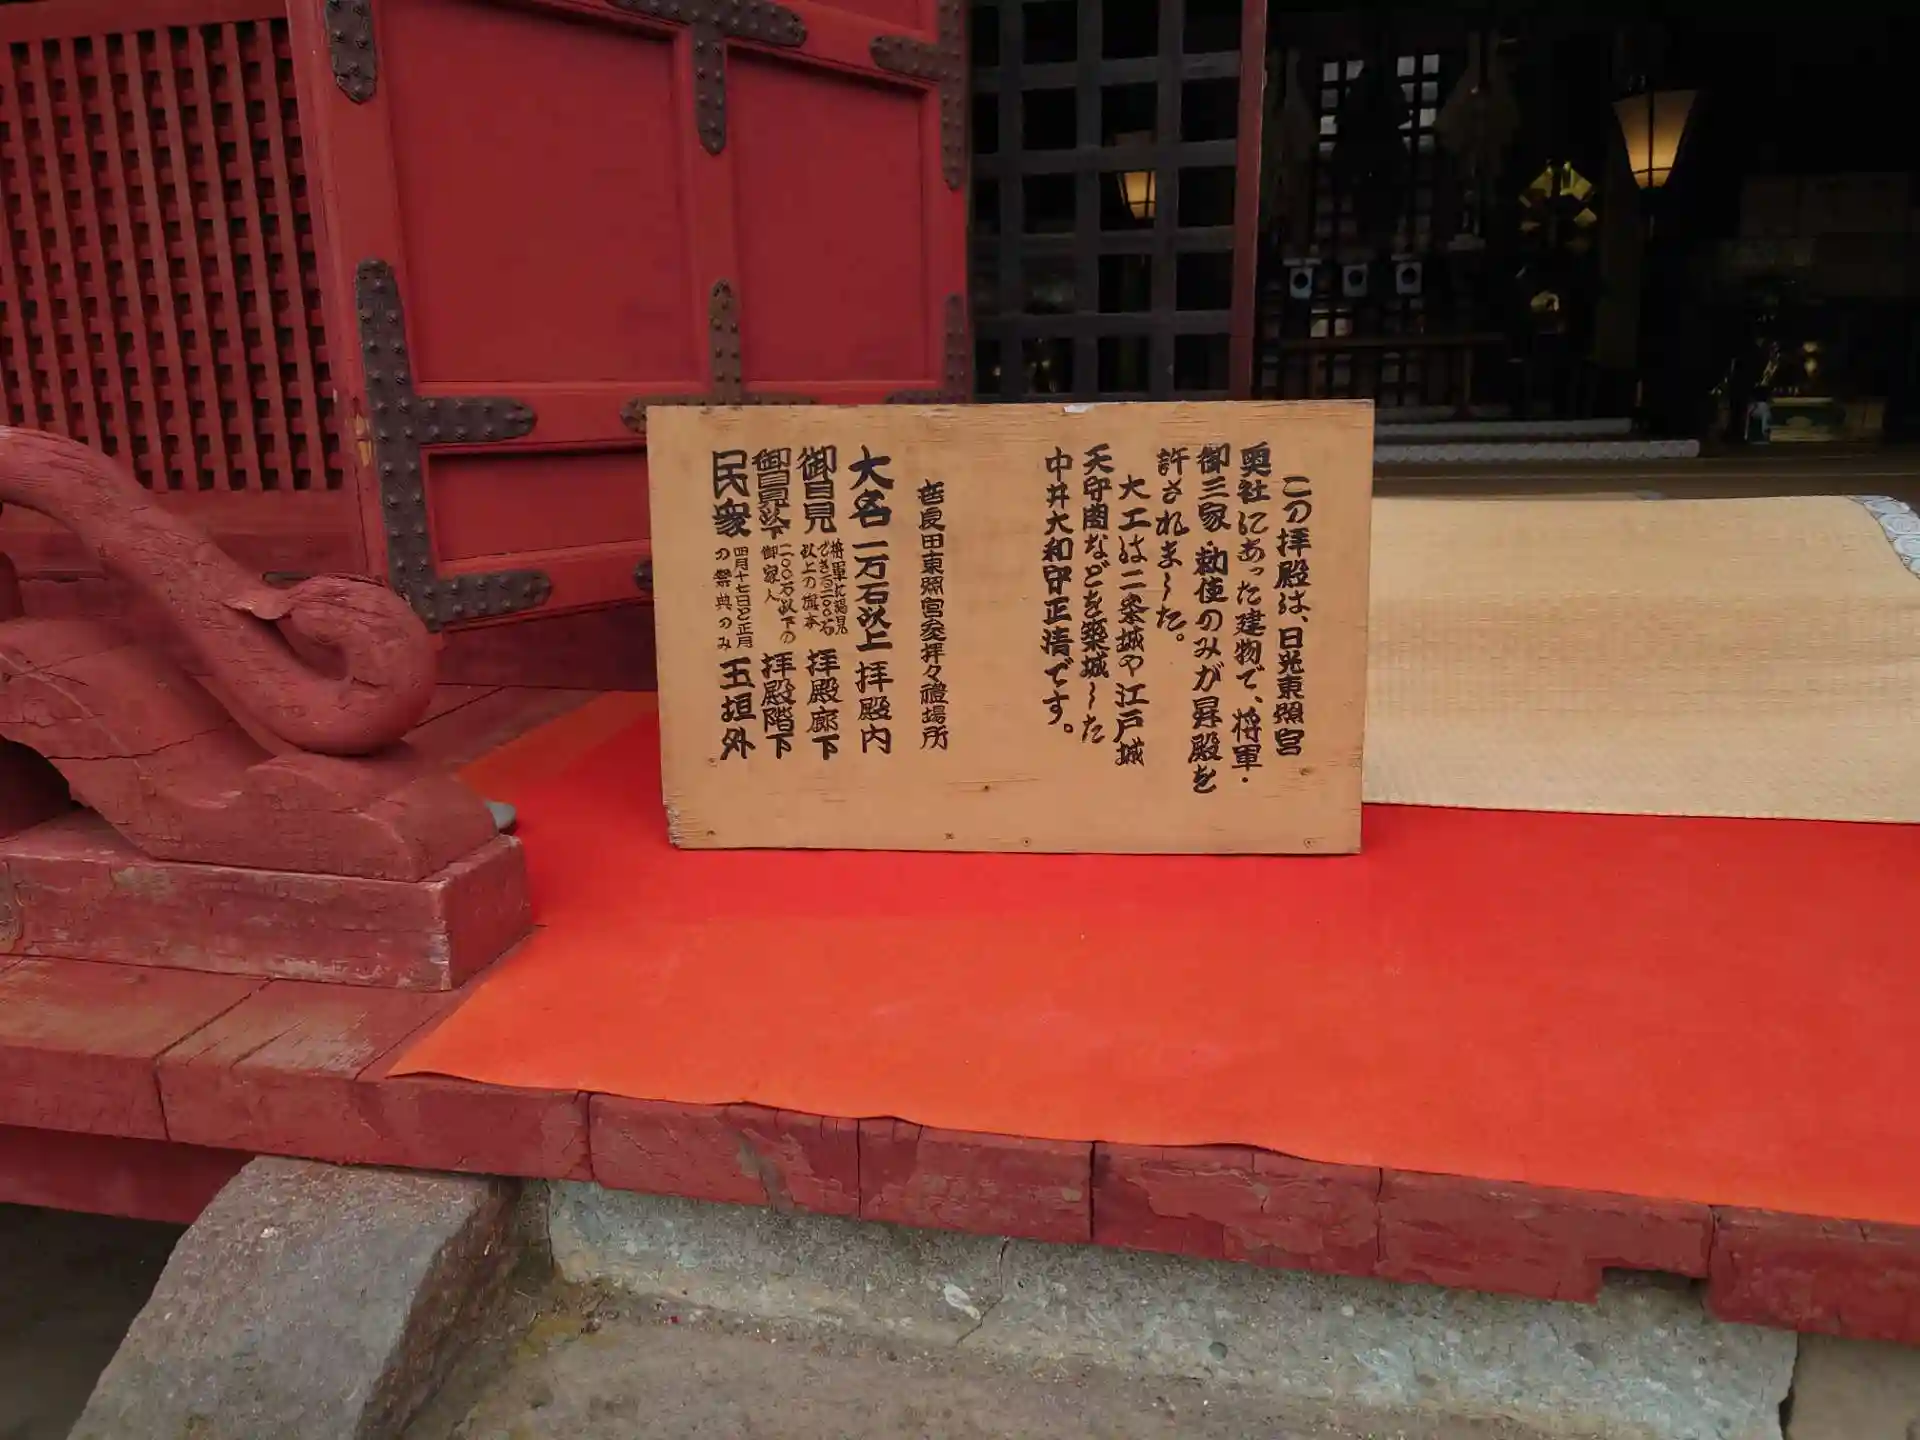 この拝殿は、日光東照宮
奥社にあった建物で、将軍・
御三家・勅使のみが昇殿を
許されました。
大工は二条城や江戸城
天守閣などを築城した
中井大和守正清です。
世良田東照宮参拝々禮場所
大名一万石以上 拝殿内
御目見 将軍に謁見できる二〇〇石以上の旗本 拝殿廊下
御目見以下 二〇〇石以下の御家人 拝殿階下
民衆 四月十七日と正月の祭典のみ 玉垣外